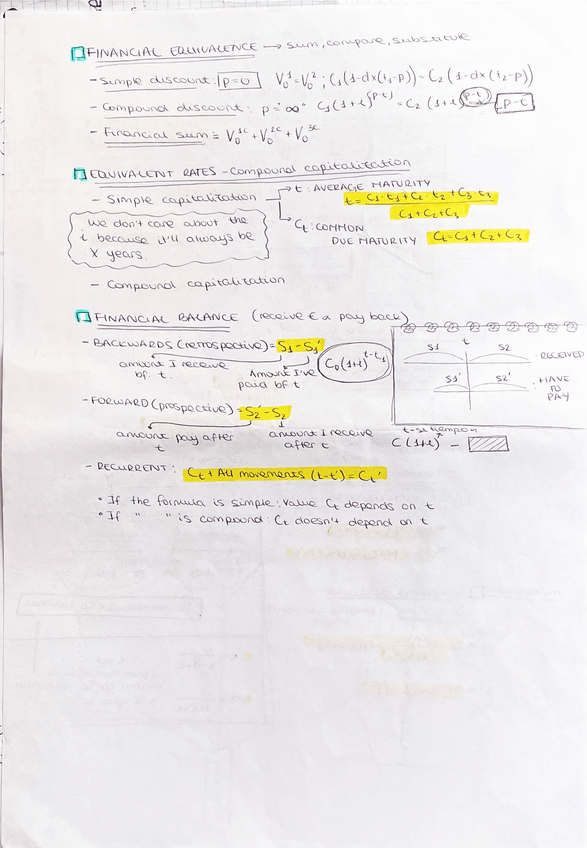 FINANCIAL EQUIVALENCE → sum, compare, substitute
- Simple discount: p=0 V₀¹=V₀²; C₁(1-d×(t₁-p)) = C₂(1-d×(t₂-p))
- Compound discount: p="∞" C₁(1+i)^(p-t) = C₂(1+i)^(p-t) p-t
- Financial sum = V₀¹ᶜ+V₀²ᶜ+V₀³ᶜ
EQUIVALENT RATES - Compound capitalization
- Simple capitalization → t: AVERAGE MATURITY
t = C₁·t₁+C₂·t₂+C₃·t₃
C₁+C₂+C₃
→ Ct: COMMON
DUE MATURITY Ct=C₁+C₂+C₃
We don't care about the
i because it'll always be
X years.
- Compound capitalization
FINANCIAL BALANCE (receive € & pay back)
- BACKWARDS (retrospective)= S₁-S₁'
amount I receive
bf. t.
Amount I've
paid bf t
C₀(1+i)^(t-t₁)
S1 t S2 RECEIVED
S1' S2' HAVE
TO
PAY
- FORWARD (prospective) = S₂'-S₂
amount pay after
t
amount I receive
after t
C(1+i) -
- RECURRENT: Ct + All movements (t-t')=Ct'
• If the formula is simple: value Ct depends on t
• If " " is compound: Ct doesn't depend on t